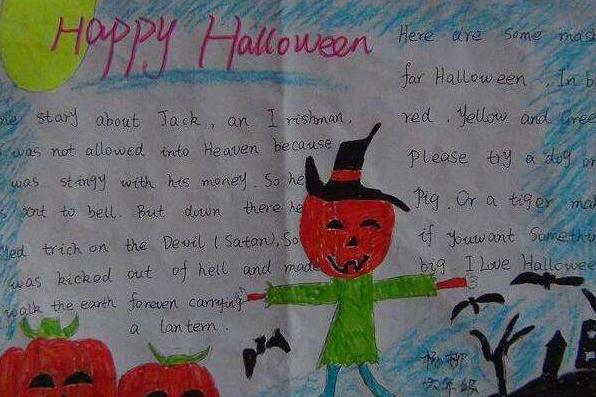 Happy Halloween
stary about Jack, an Irishman,
was not allowed into Heaven because
was stingy with his money. So he
to bell. But down there he
trich on the Devil (Satan), So
was kicked out of hell and made
walk the earth foreven carrying
a lantern.
Here are some
far Halloween, In
red, Yellow and
please try a dog or
Pig. Or a tiger
if youwant
big I Love
杨柳
六年级